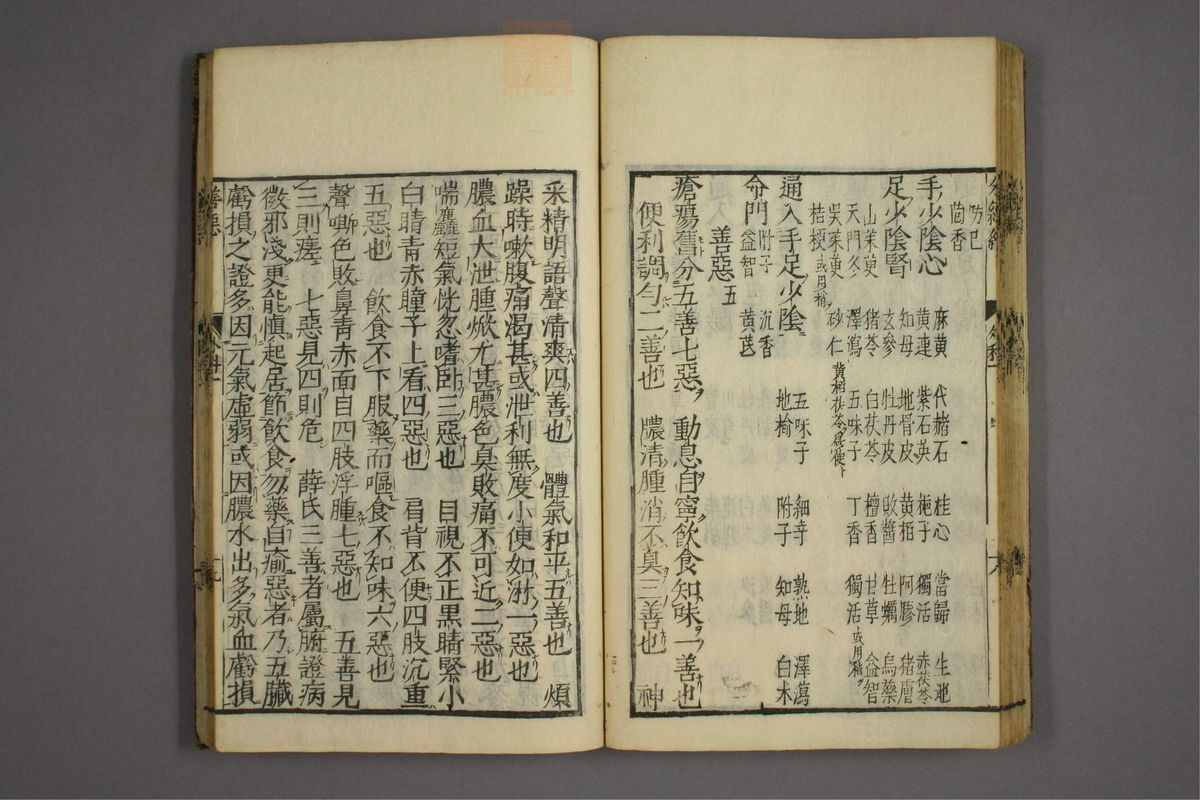 防巴
茴香
手少陰心 麻黃 代赭石 桂心 當歸 生地
黃連 紫石英 梔子 獨活 赤茯苓
足少陰腎 知母 地骨皮 黃栢 阿膠 猪膚
玄參 牡丹皮 敗醬 牡蠣 烏藥
山茱萸 猪苓 白茯苓 檀香 甘草 益智
天門冬 澤瀉 五味子 丁香 獨活或用稍
吳茱萸 砂仁黃栢茯苓為使
桔梗或用稍
通入手足少陰 五味子 細辛 熟地 澤瀉
地榆 附子 知母 白木
命門 附子 沉香
益智 黃芪
善惡五
瘡瘍舊分五善七惡 動息自寧飲食知味一善也
便利調勻二善也 膿清腫消不臭三善也 神
采精明語聲清爽四善也 體氣和平五善也 煩
躁時嗽腹痛渴甚或泄利無度小便如淋一惡也
膿血大泄腫焮尤甚膿色臭敗痛不可近二惡也
喘麤短氣恍忽嗜卧三惡也 目視不正黑睛緊小
白睛青赤瞳子上看四惡也 肩背不便四肢沉重
五惡也 飲食不下服藥而嘔食不知味六惡也
聲嘶色敗鼻青赤面目四肢浮腫七惡也 五善見
三則瘥 七惡見四則危 薛氏三善者屬腑證病
微邪淺更能慎起居節飲食勿藥自瘉惡者乃五臟
虧損之證多因元氣虛弱或因膿水出多氣血虧損
善惡